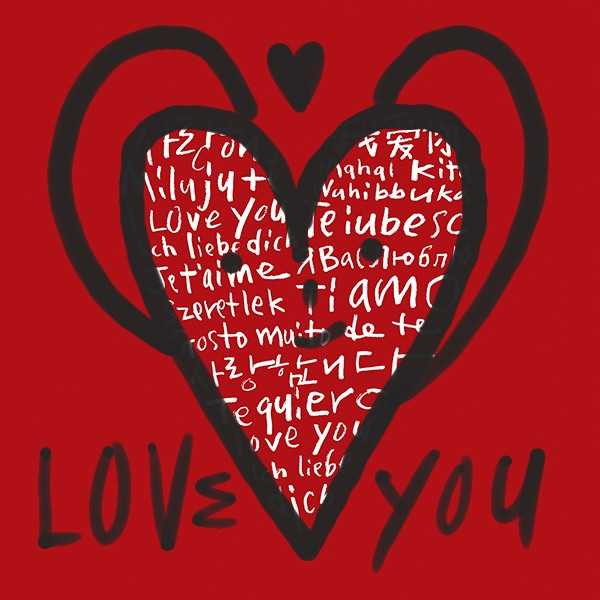 我爱你
Miluju tě
Mahal kita
Love you
Wahibbuka
Te iubesc
Ich liebe dich
Я Вас люблю
Je t'aime
Ti amo
Szeretlek
Gosto muito de te
사랑합니다
Te quiero
Love you
Ich liebe
dich
LOVE YOU